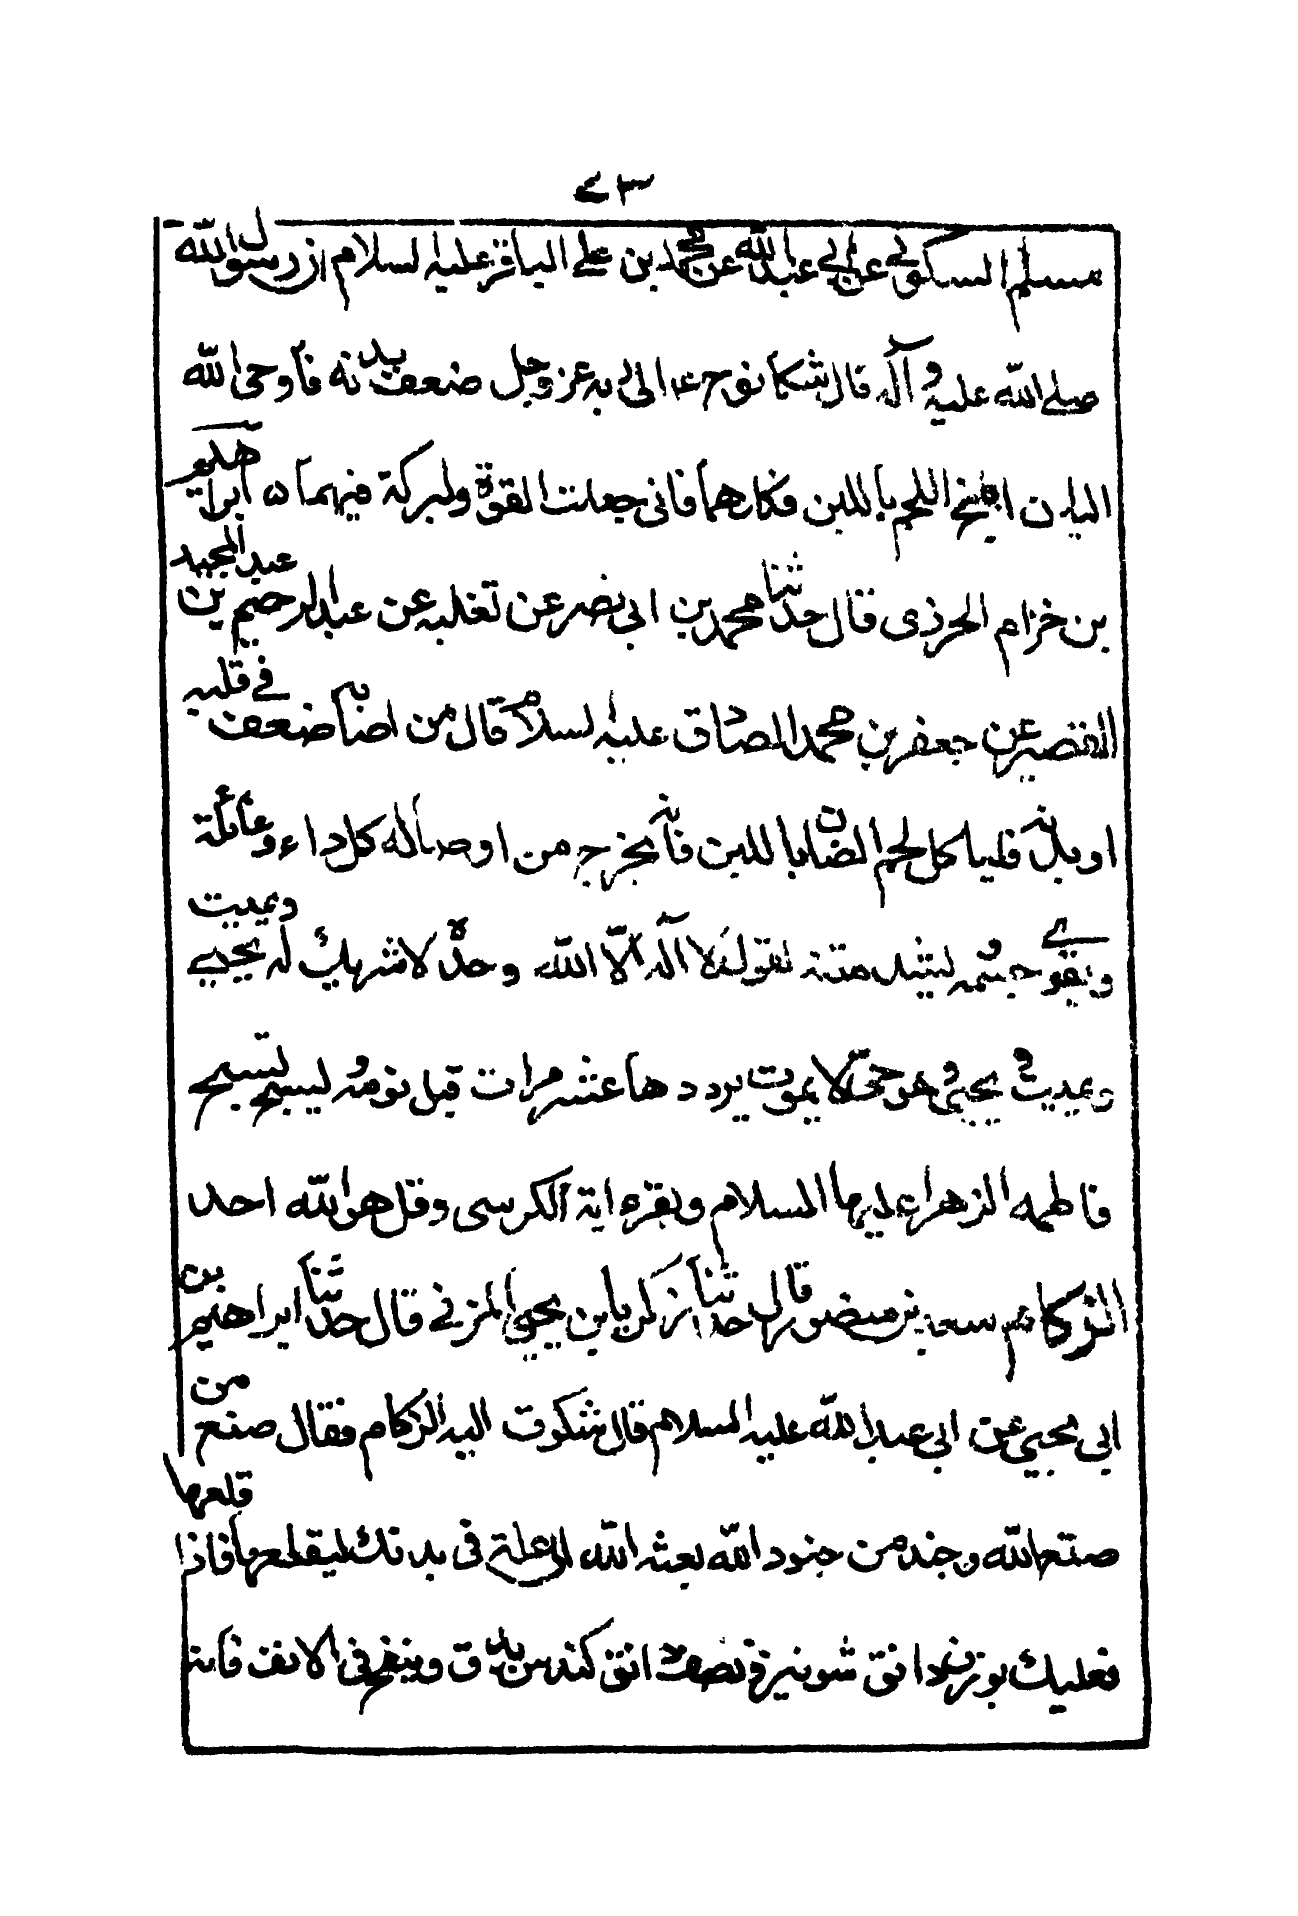 ٤٣
مسلم السكوني عن ابي عبدالله عن محمد بن علي الباقر عليه السلام ان رسول الله
صلى الله عليه و آله قال شكا نوح ع الى ربه عز وجل ضعف بدنه فاوحى الله
اليه ان اطبخ اللحم باللبن فكلهما فانى جعلت القوة والبركة فيهما ٥
بن خزام الحرذى قال حدثنا محمد بن ابى نصر عن ثعلبه عن عبدالرحيم بن عبد المجيد
القصير عن جعفر بن محمد الصادق عليه السلام قال من اصابه ضعف في قلبه
او بدنه فلياكل لحم الضان باللبن فانه يخرج من اوصاله كل داء وغائلة
ويقوي جسمه ويشد متنه تقول لا اله الا الله وحده لا شريك له يحيي ويميت
ويميت ويحيي وهو حي لا يموت يرددها عشر مرات قبل نومه ويسبح تسبيح
فاطمه الزهراء عليها السلام ويقرء اية الكرسى وقل هو الله احد
الزكام سعيد بن منصور قال حدثنا زكريا بن يحيى المزني قال حدثنا ابراهيم بن
ابى يحيى عن ابى عبدالله عليه السلام قال شكوت اليه الزكام فقال صنع من
صنع الله وجند من جنود الله بعثه الله الى علة في بدنك ليقلعها فاذا قلعها
فعليك بوزن دانق شونيز ونصف دانق كندس يدق وينفخ في الانف فانه